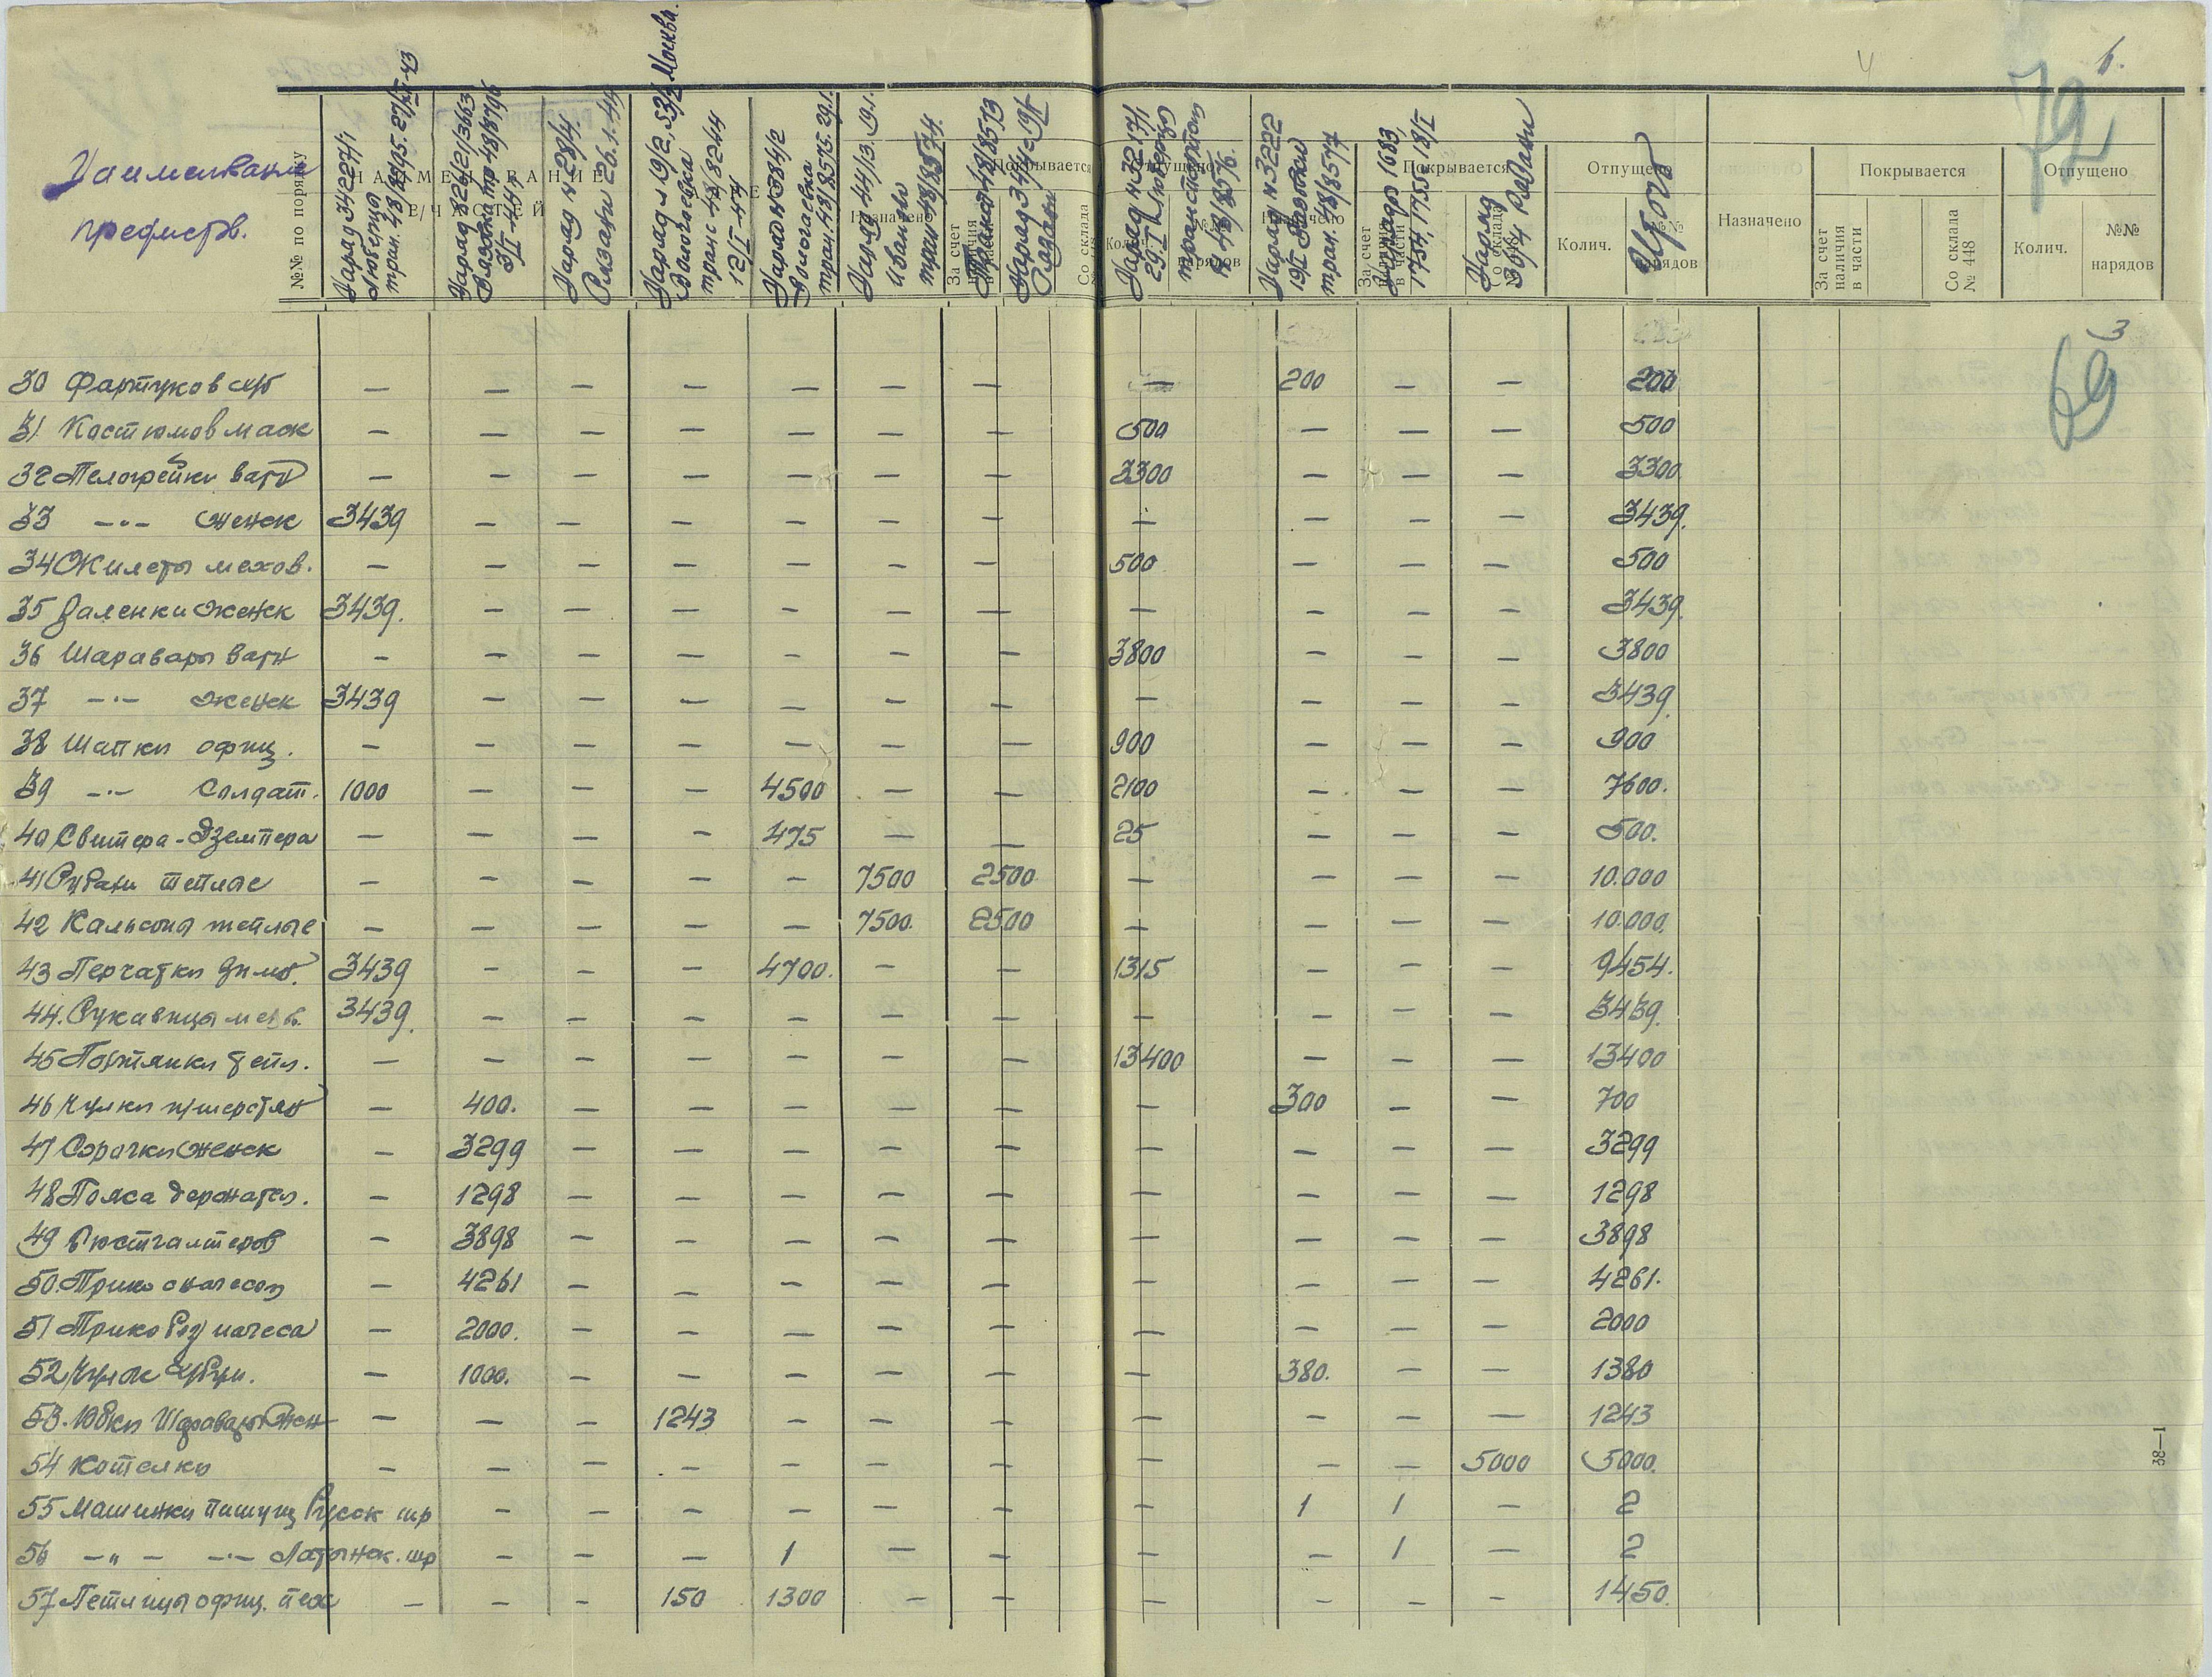 6.
72
Наименовани
предметов.
№№ по порядку
НАИМЕНОВАНИЕ
Ч А С Т Е Й
Наряд 342271/1 Люберцы тран. 48/8495. 27/XII-43
Наряд н 28/4. Рязани 26.1.44
Наряд н 19/2, 53/2 Москва. Вологаевка транс 48/8244 12/I-44
Наряд н 384/2 Вологаевка тран. 48/8575. 29.1.
Наряд 44/3. 19.1. Иваново тран 48/8574.
Назначено
Покрывается
За счет наличия в части
Со склада
Отпущено
Колич.
№№ нарядов
Наряд н 32171/1 29.I Люберцы транспортом н 48/8576.
Наряд н 3222
тран. 48/8577
Назначено
Покрывается
За счет наличия в части
1683, 1734, 1735 18/I
Наряд 3654 Рязани
Отпущено
Колич.
№№ нарядов
Итого
Назначено
Покрывается
За счет наличия в части
Со склада № 448
Отпущено
Колич.
№№ нарядов
3
69
30 Фартуков х/б — — — — — — — — 200 — — 200
31 Костюмов маск — — — — — — — 500 — — — 500
32 Телогрейки ватн — — — — — — — 3300 — — — 3300.
33 —"— женск 3439 — — — — — — — — — — 3439.
34 Жилеты мехов. — — — — — — — 500 — — — 500
35 Валенки женск 3439. — — — — — — — — — — 3439.
36 Шаравары ватн — — — — — — — 3800 — — — 3800
37 —"— женск 3439 — — — — — — — — — — 3439.
38 Шапки офиц. — — — — — — — 900 — — — 900
39 —"— солдат. 1000 — — — 4500 — — 2100 — — — 7600.
40 Свитера-Дземпера — — — — 475 — — 25 — — — 500.
41 Рубахи теплые — — — — — 7500 2500 — — — — 10.000
42 Кальсоны теплые — — — — — 7500. 2500 — — — — 10.000.
43 Перчатки зимн. 3439 — — — 4700. — — 1315 — — — 9454.
44. Рукавицы мехв. 3439. — — — — — — — — — — 3439.
45 Портянки тепл. — — — — — — — 13400 — — — 13400
46 Чулки п/шерстян — 400. — — — — — — 300 — — 700
47 Сорочки женск — 3299 — — — — — — — — — 3299
48 Пояса держател. — 1298 — — — — — — — — — 1298
49 Бюстгалтеров — 3898 — — — — — — — — — 3898
50. Трико с начесом — 4261 — — — — — — — — — 4261.
51 Трико без начеса — 2000. — — — — — — — — — 2000
52 Чулок х/бум. — 1000. — — — — — — 380. — — 1380
53. Юбки Шаровары Жен — — — 1243 — — — — — — — 1243
54 Котелки — — — — — — — — — — 5000 5000.
55 Машинки пишущ Русск шр — — — — — — — 1 1 — 2
56 —"— —"— Латынск. шр — — — 1 — — — — 1 — 2
57 Петлицы офиц. пех — — — 150 1300 — — — — — — 1450.
38—I